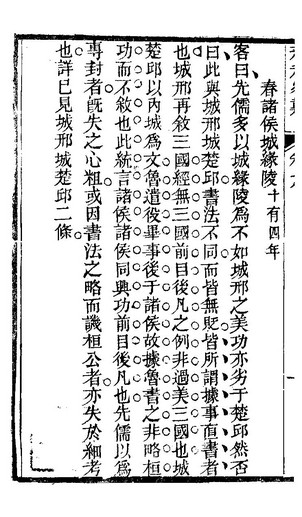 春諸侯城緣陵十有四年
客曰先儒多以城緣陵為不如城邢之美功亦劣于楚邱然否
曰此與城邢城楚邱書法不同而皆無貶皆所謂據事直書者
也城邢再敘三國經無三國前目後凡之例非過美三國也城
楚邱以內城為文魯遣役畢事後于諸侯故據魯書之非略桓
功而不敘也此統言諸侯諸侯同興功前目後凡也先儒以為
專封者旣失之心粗或因書法之略而譏桓公者亦失於細考
也詳已見城邢城楚邱二條